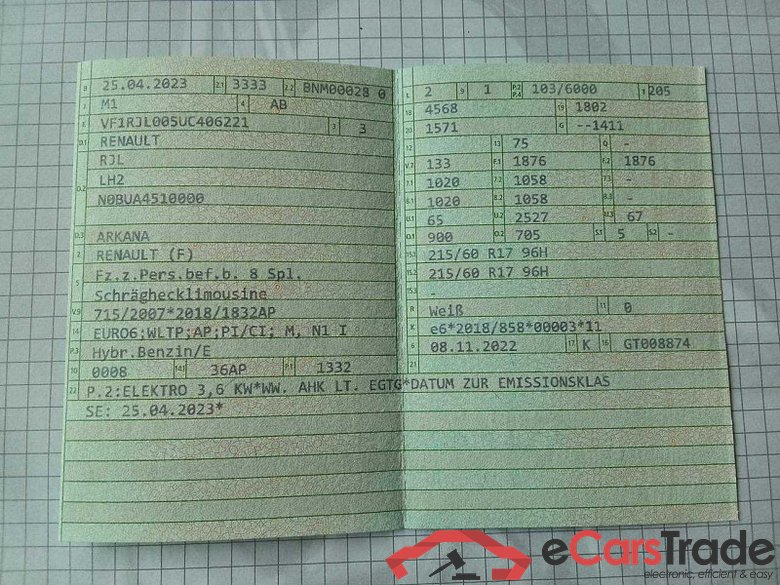 B 25.04.2023 2.1 3333 2.2 BNM00028 0
J M1 4 AB
E VF1RJL005UC406221 3 3
D.1 RENAULT
RJL
D.2 LH2
N0BUA4510000
D.3 ARKANA
2 RENAULT (F)
5 Fz.z.Pers.bef.b. 8 Spl.
Schräghecklimousine
V.9 715/2007*2018/1832AP
14 EURO6;WLTP;AP;PI/CI; M, N1 I
P.3 Hybr.Benzin/E
10 0008 14.1 36AP P.1 1332
22 P.2:ELEKTRO 3,6 KW*WW. AHK LT. EGTG*DATUM ZUR EMISSIONSKLAS
SE: 25.04.2023*
L 2 9 1 P.2 P.4 103/6000 T 205
18 4568 19 1802
20 1571 G --1411
12 13 75 Q -
V.7 133 F.1 1876 F.2 1876
7.1 1020 7.2 1058 7.3 -
8.1 1020 8.2 1058 8.3 -
U.1 65 U.2 2527 U.3 67
O.1 900 O.2 705 S.1 5 S.2 -
15.1 215/60 R17 96H
15.2 215/60 R17 96H
15.3 -
R Weiß 11 0
K e6*2018/858*00003*11
6 08.11.2022 17 K 16 GT008874
21
eCarsTrade
electronic, efficient & easy